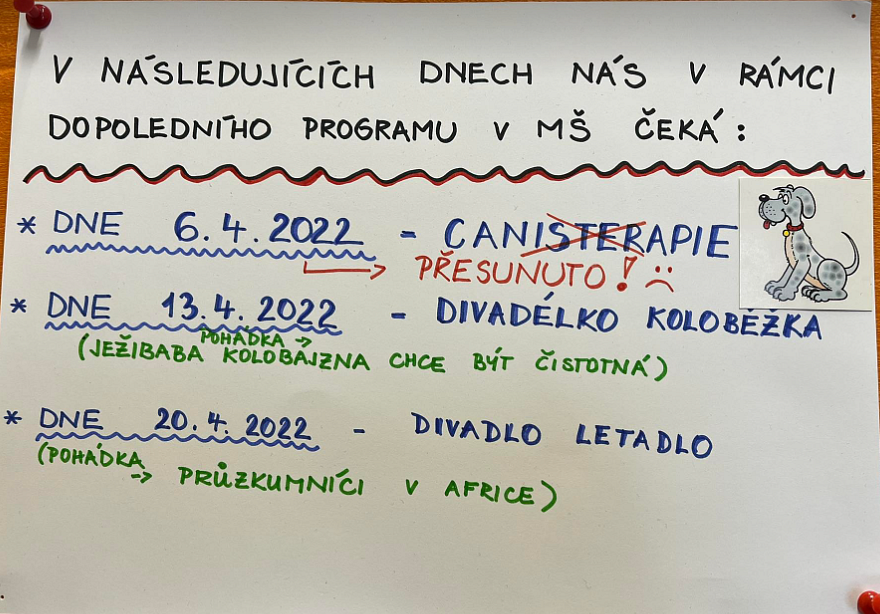 V NÁSLEDUJÍCÍCH DNECH NÁS V RÁMCI
DOPOLEDNÍHO PROGRAMU V MŠ ČEKÁ:
* DNE 6.4.2022 - CANISTERAPIE
→ PŘESUNUTO! :(
* DNE 13.4.2022 - DIVADÉLKO KOLOBĚŽKA
POHÁDKA →
(JEŽIBABA KOLOBAJZNA CHCE BÝT ČISTOTNÁ)
* DNE 20.4.2022 - DIVADLO LETADLO
(POHÁDKA
→ PRŮZKUMNÍCI V AFRICE)